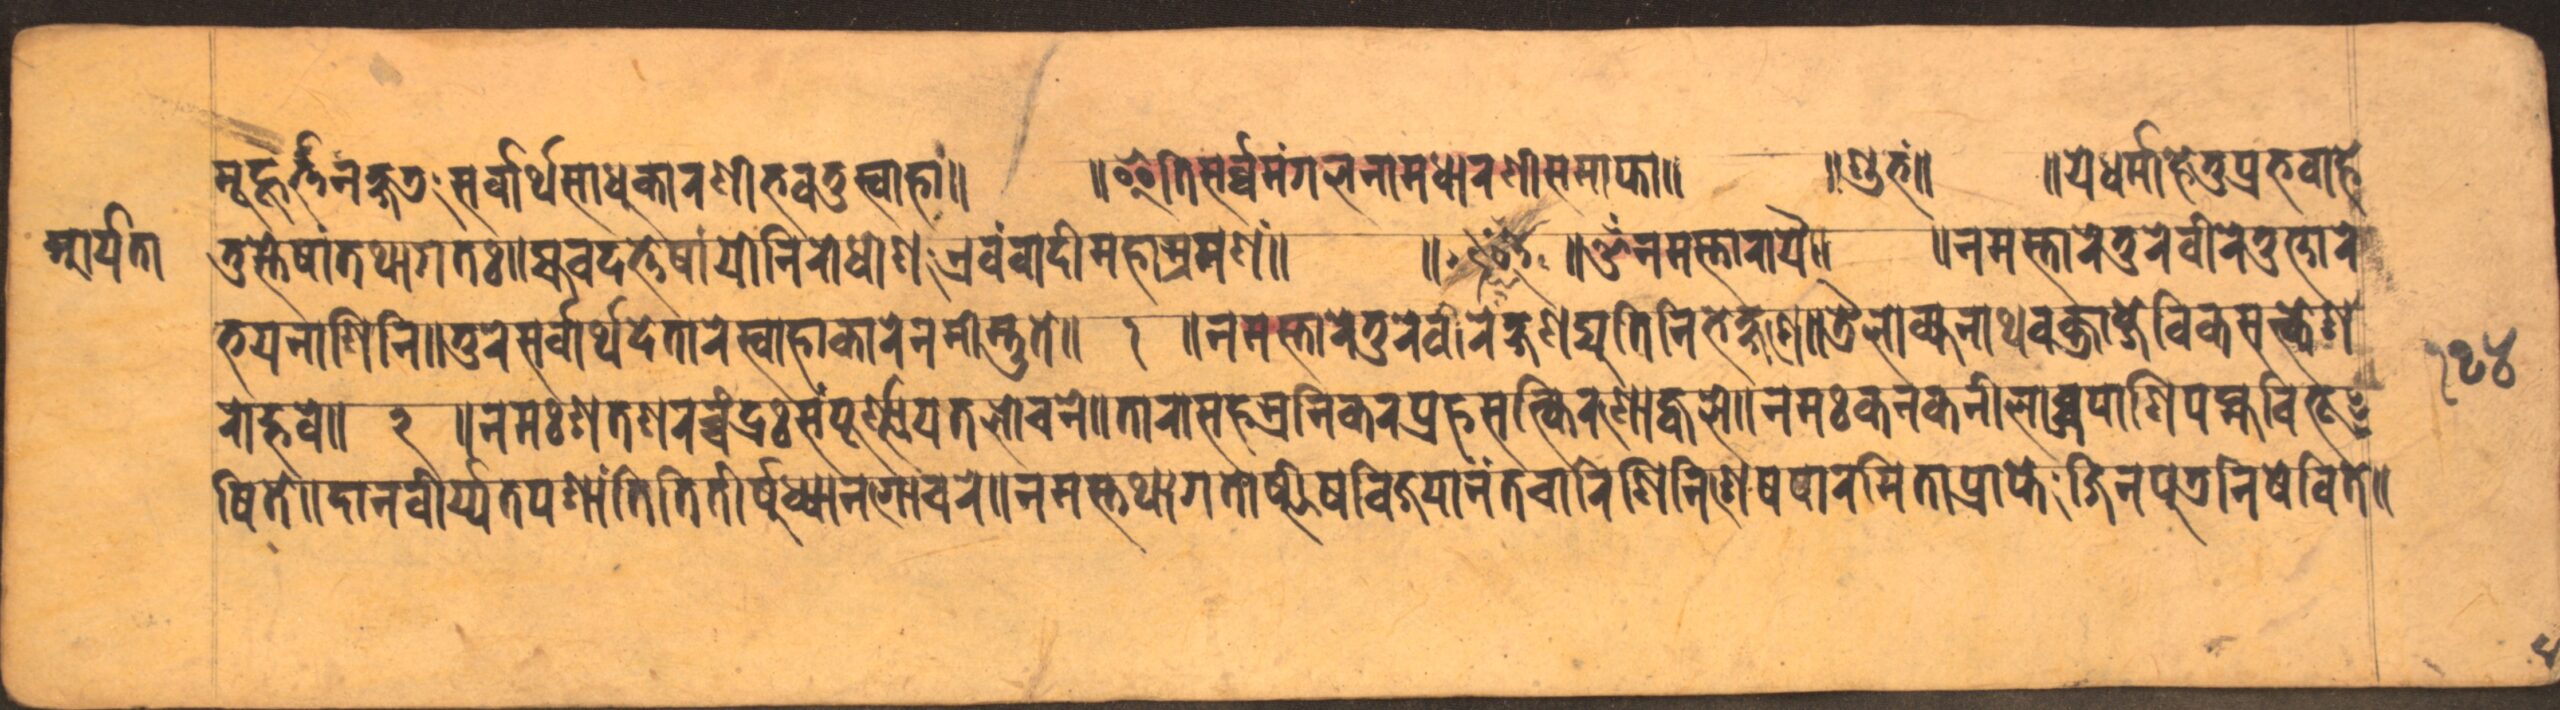 मूहूर्त्तनक्षत्रः सर्वार्थसाधुकारणीभवतुस्वाहा॥ ॥इतिसर्व्वमंगलनामधारणीसमाप्ता॥ ॥शुभं॥ ॥येधर्माहेतुप्रभवाहे
आर्यता
तुस्तेषांतथागतः॥ह्यवदत्तेषांयोनिरोधोणः एवंवादीमहाश्रमणं॥ ॥ ॥ॐनमस्तारायै॥ ॥नमस्तारेतुरेवीरेतुत्तारे
भयनाशिनि॥तुरेसर्वार्थदेतारेस्वाहाकारेनमोस्तुते॥ १ ॥नमस्तारेतुरेवीरेक्षणद्युतिनिभेक्षणे॥त्रैलोक्यनाथवक्त्राब्जेविकसत्केश
१७४
रोद्भवे॥ २ ॥नमःशतशरच्चंद्रःसंपूर्णायतलोचने॥तारासहस्रनिकरप्रहसत्किरणोज्वले॥नमःकनकनीलाब्जपाणिपद्मविभू
षिते॥दानवीर्य्यतपशांतितितीर्षुध्यानगोचरे॥नमस्तथागतोष्णीषविजयानंतचारिणिनिशेषपारमिताप्राप्तेःजिनपुत्रनिषेविते॥